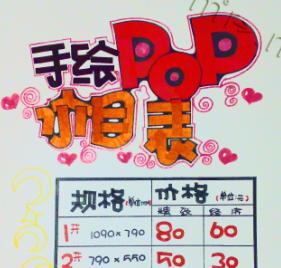 手绘POP
价目表
规格(单位:mm) 价格(单位:元)
精致 经济
1开 1090×790 80 60
2开 790×550 50 30